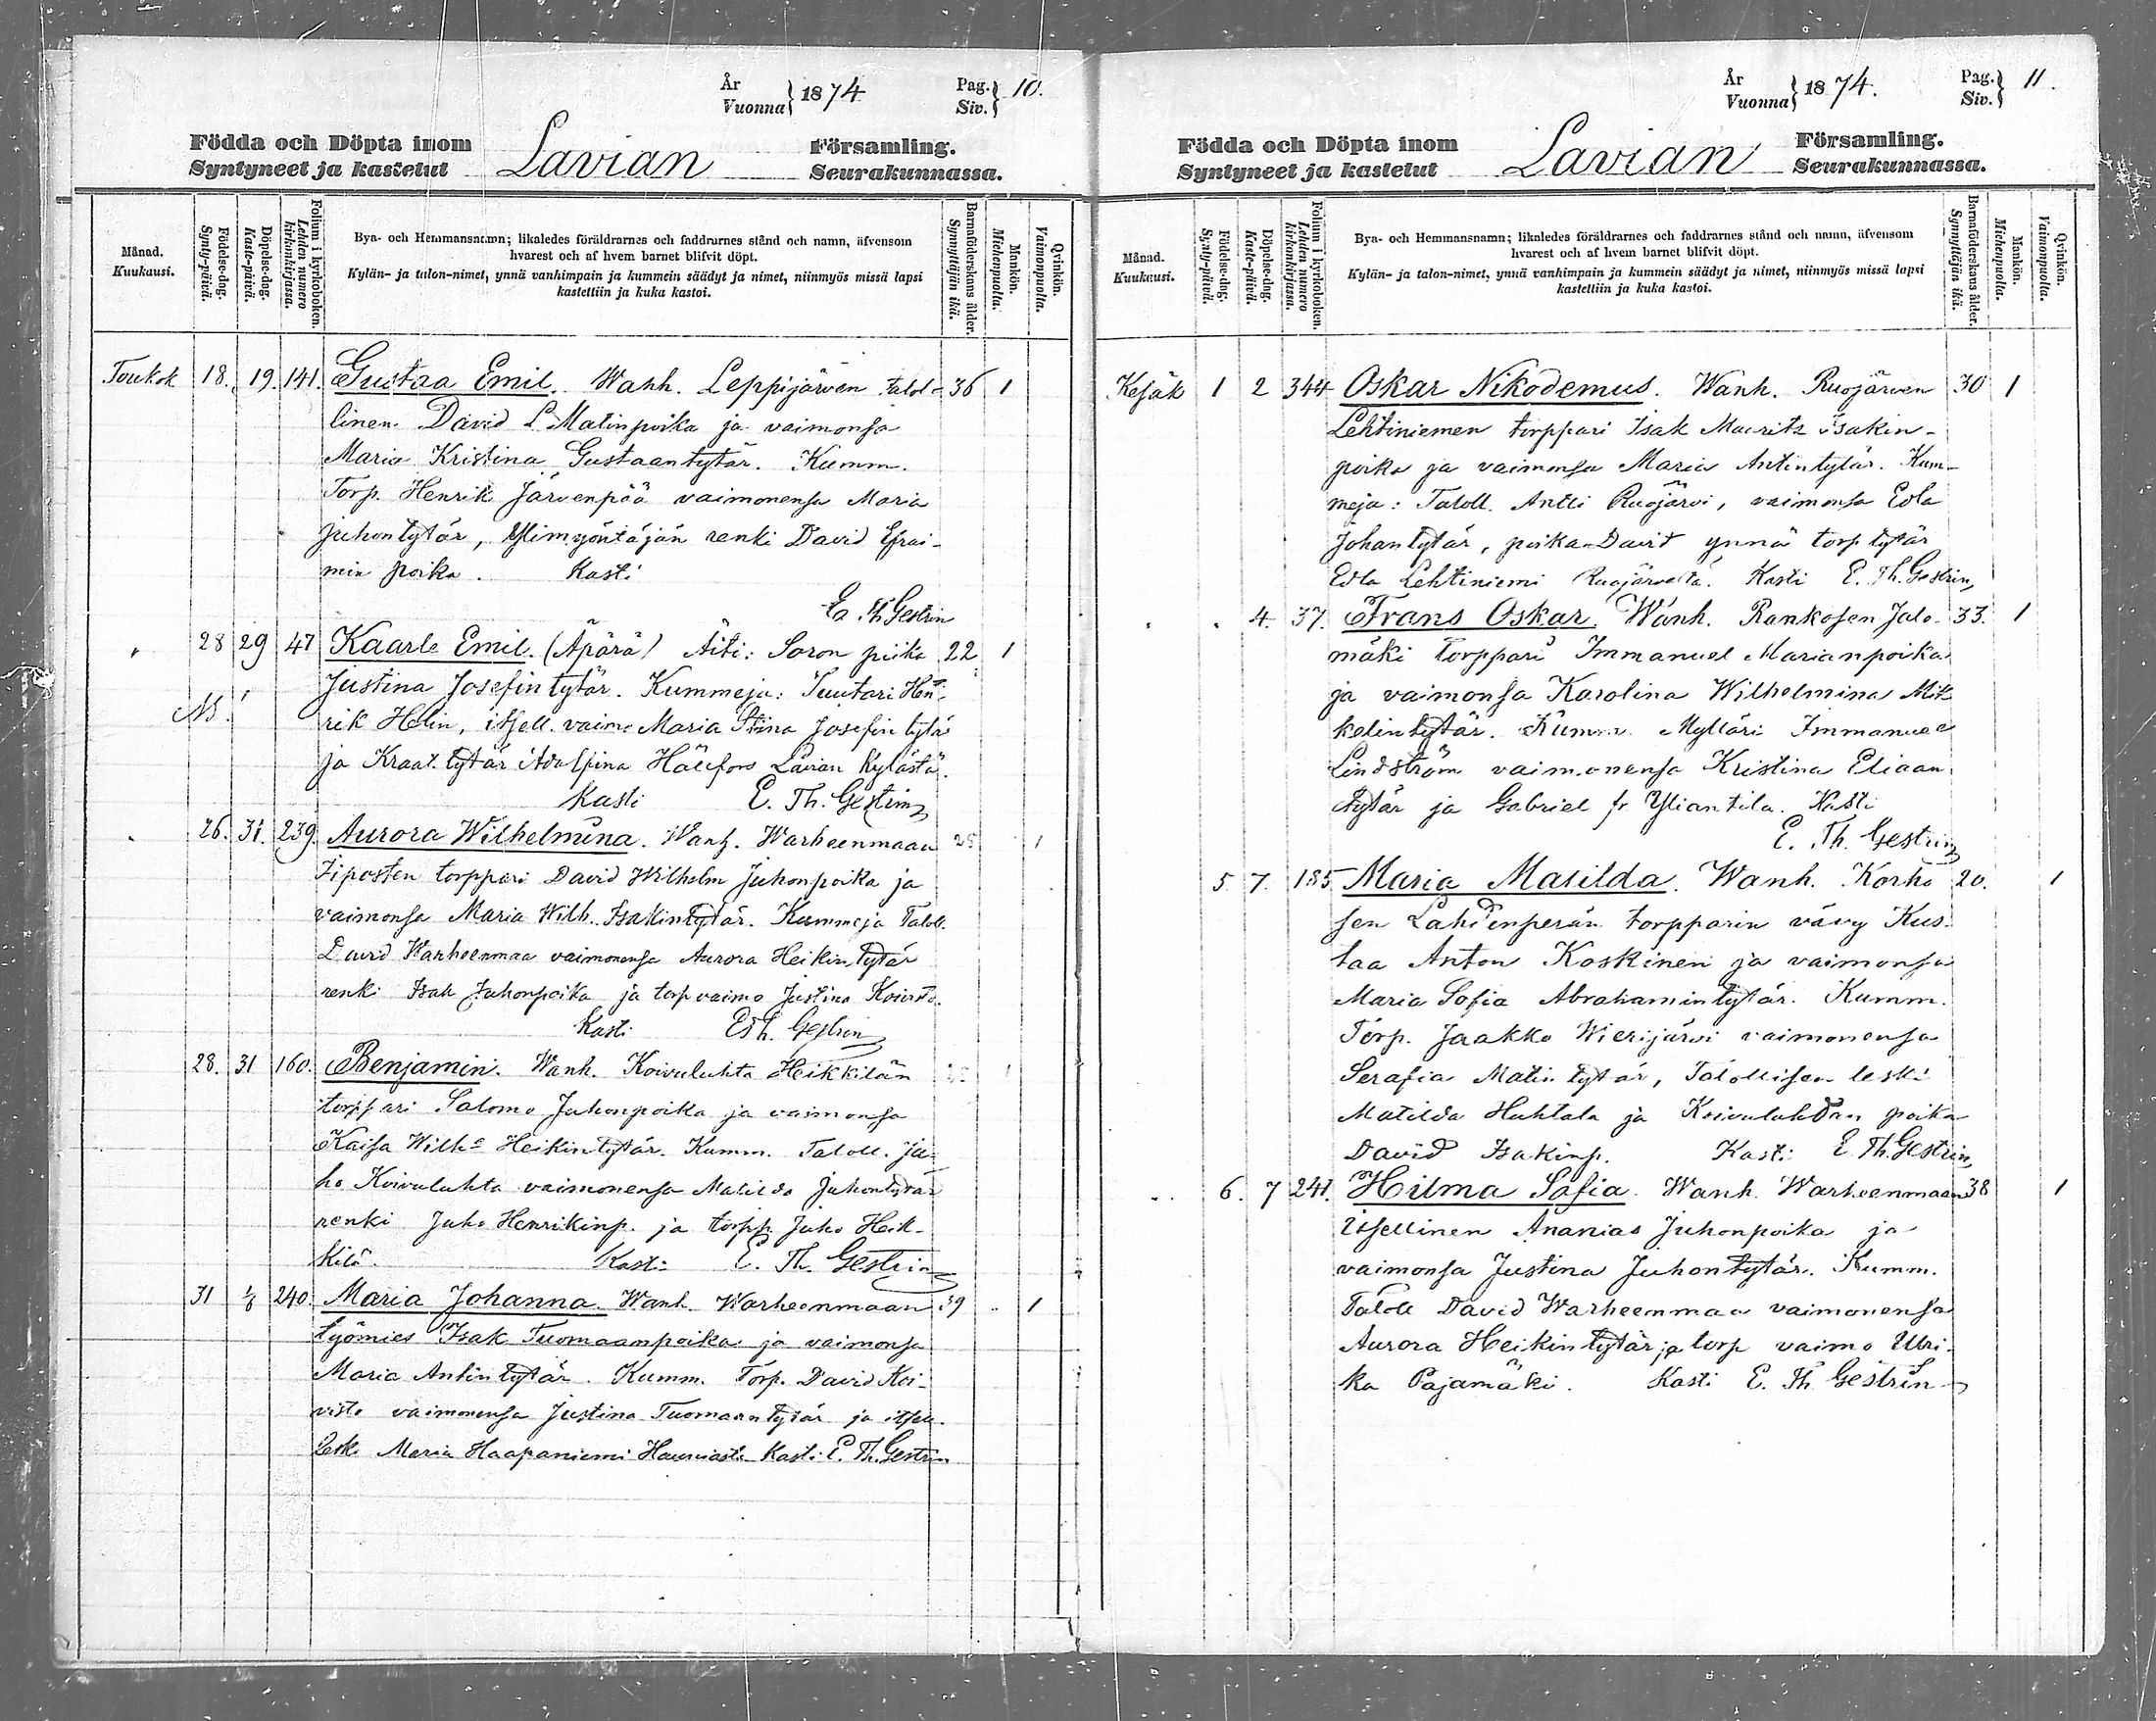 År
Vuonna } 1874 Pag.
Siv. } 10.
Födda och Döpta inom
Syntyneet ja kastetut Lavian Församling.
Seurakunnassa.
Månad.
Kuukausi.
Födelse-dag.
Synty-päivä.
Döpelse-dag.
Kaste-päivä.
Folium i kyrkoboken.
Lehden numero
kirkonkirjassa.
Bya- och Hemmansnamn; likaledes föräldrarnes och faddrarnes stånd och namn, äfvensom
hvarest och af hvem barnet blifvit döpt.
Kylän- ja talon-nimet, ynnä vanhimpain ja kummein säädyt ja nimet, niinmyös missä lapsi
kastettiin ja kuka kastoi.
Barnaföderskans ålder.
Synnyttäjän ikä.
Mankön.
Miehenpuolta.
Qvinkön.
Vaimonpuolta.
Toukok 18. 19. 141. Gustaa Emil. Wanh. Leppijärven talol= 36 1
linen David L. Matinpoika ja vaimonsa
Maria Kristina Gustaantytär. Kumm.
Torp. Henrik Järvenpää vaimonensa Maria
Juhontytär, Ylimyöntäjän renki David Efrai-
min poika. Kasti
E. Th Gestrin
28 29 47 Kaarle Emil. (Äpärä) Äiti: Soron piika 22 1
Justina Josefintytär. Kummeja: Suutari Hen-
NB! rik Helin, itsell. vaimo Maria Stina Josefin tytär
ja Kraat. tytär Adolfina Hällfors Lavian kylästä.
Kasti E. Th. Gestrin
26. 31. 239. Aurora Wilhelmina. Wanh. Warheenmaan 25 1
torppari David Wilhelm Juhonpoika ja
vaimonsa Maria Wilh. Isakintytär. Kummeja Taloll.
David Warheenmaa vaimonensa Aurora Heikintytär
renki Isak Juhonpoika ja torp vaimo Justina Koivisto.
Kasti E Th. Gestrin
28. 31 160. Benjamin. Wanh. Koivuluhta Heikkilän 1
torppari Salomo Juhonpoika ja vaimonsa
Kaisa Wilh:a Heikintytär. Kumm. Taloll. Ju-
ho Koivuluhta vaimonensa Matilda Juhontytär
renki Juho Henrikinp. ja torpp. Juho Heik-
kilä. Kasti E. Th. Gestrin
31 1/6 240. Maria Johanna. Wanh. Warheenmaan 39 1
työmies Isak Tuomaanpoika ja vaimonsa
Maria Antintytär. Kumm. Torp. David Koi-
visto vaimonensa Justina Tuomaantytär ja itsell.
leski Maria Haapaniemi Kasti E. Th. Gestrin
År
Vuonna } 1874. Pag.
Siv. } 11.
Födda och Döpta inom
Syntyneet ja kastetut Lavian Församling.
Seurakunnassa.
Månad.
Kuukausi.
Födelse-dag.
Synty-päivä.
Döpelse-dag.
Kaste-päivä.
Folium i kyrkoboken.
Lehden numero
kirkonkirjassa.
Bya- och Hemmansnamn; likaledes föräldrarnes och faddrarnes stånd och namn, äfvensom
hvarest och af hvem barnet blifvit döpt.
Kylän- ja talon-nimet, ynnä vanhimpain ja kummein säädyt ja nimet, niinmyös missä lapsi
kastettiin ja kuka kastoi.
Barnaföderskans ålder.
Synnyttäjän ikä.
Mankön.
Miehenpuolta.
Qvinkön.
Vaimonpuolta.
Kesäk 1 2 344 Oskar Nikodemus. Wanh. Ruojärven 30 1
Lehtiniemen torppari Isak Maurits Isakin-
poika ja vaimonsa Maria Antintytär. Kum-
meja: Taloll. Antti Ruojärvi, vaimonsa Edla
Johantytär, poika David ynnä torp tytär
Edla Lehtiniemi Ruojärveltä. Kasti E. Th. Gestrin
4. 37. Frans Oskar. Wanh. Rankosen Jalo- 33. 1
mäki torppari Immanuel Marianpoika
ja vaimonsa Karolina Wilhelmina Mik
kelintytär. Kumm. Mylläri Immanuel
Lindström vaimonensa Kristina Eliaan
tytär ja Gabriel fr Yliantila. Kasti
E. Th. Gestrin
5. 7. 185 Maria Matilda. Wanh. Korho 20. 1
sen Lahdenperän torpparin vävy Kus-
taa Anton Koskinen ja vaimonsa
Maria Sofia Abrahamintytär. Kumm.
Torp. Jaakko Wierijärvi vaimonensa
Serafia Matintytär, Talollisen leski
Matilda Huhtala ja Koivuluhdan poika
David Isakinp. Kasti E. Th. Gestrin
6. 7 241. Hilma Sofia. Wanh. Warheenmaan 38 1
itsellinen Ananias Juhonpoika ja
vaimonsa Justina Juhontytär. Kumm.
Taloll David Warheenmaa vaimonensa
Aurora Heikintytär ja torp vaimo Ulri-
ka Pajamäki. Kasti E. Th. Gestrin